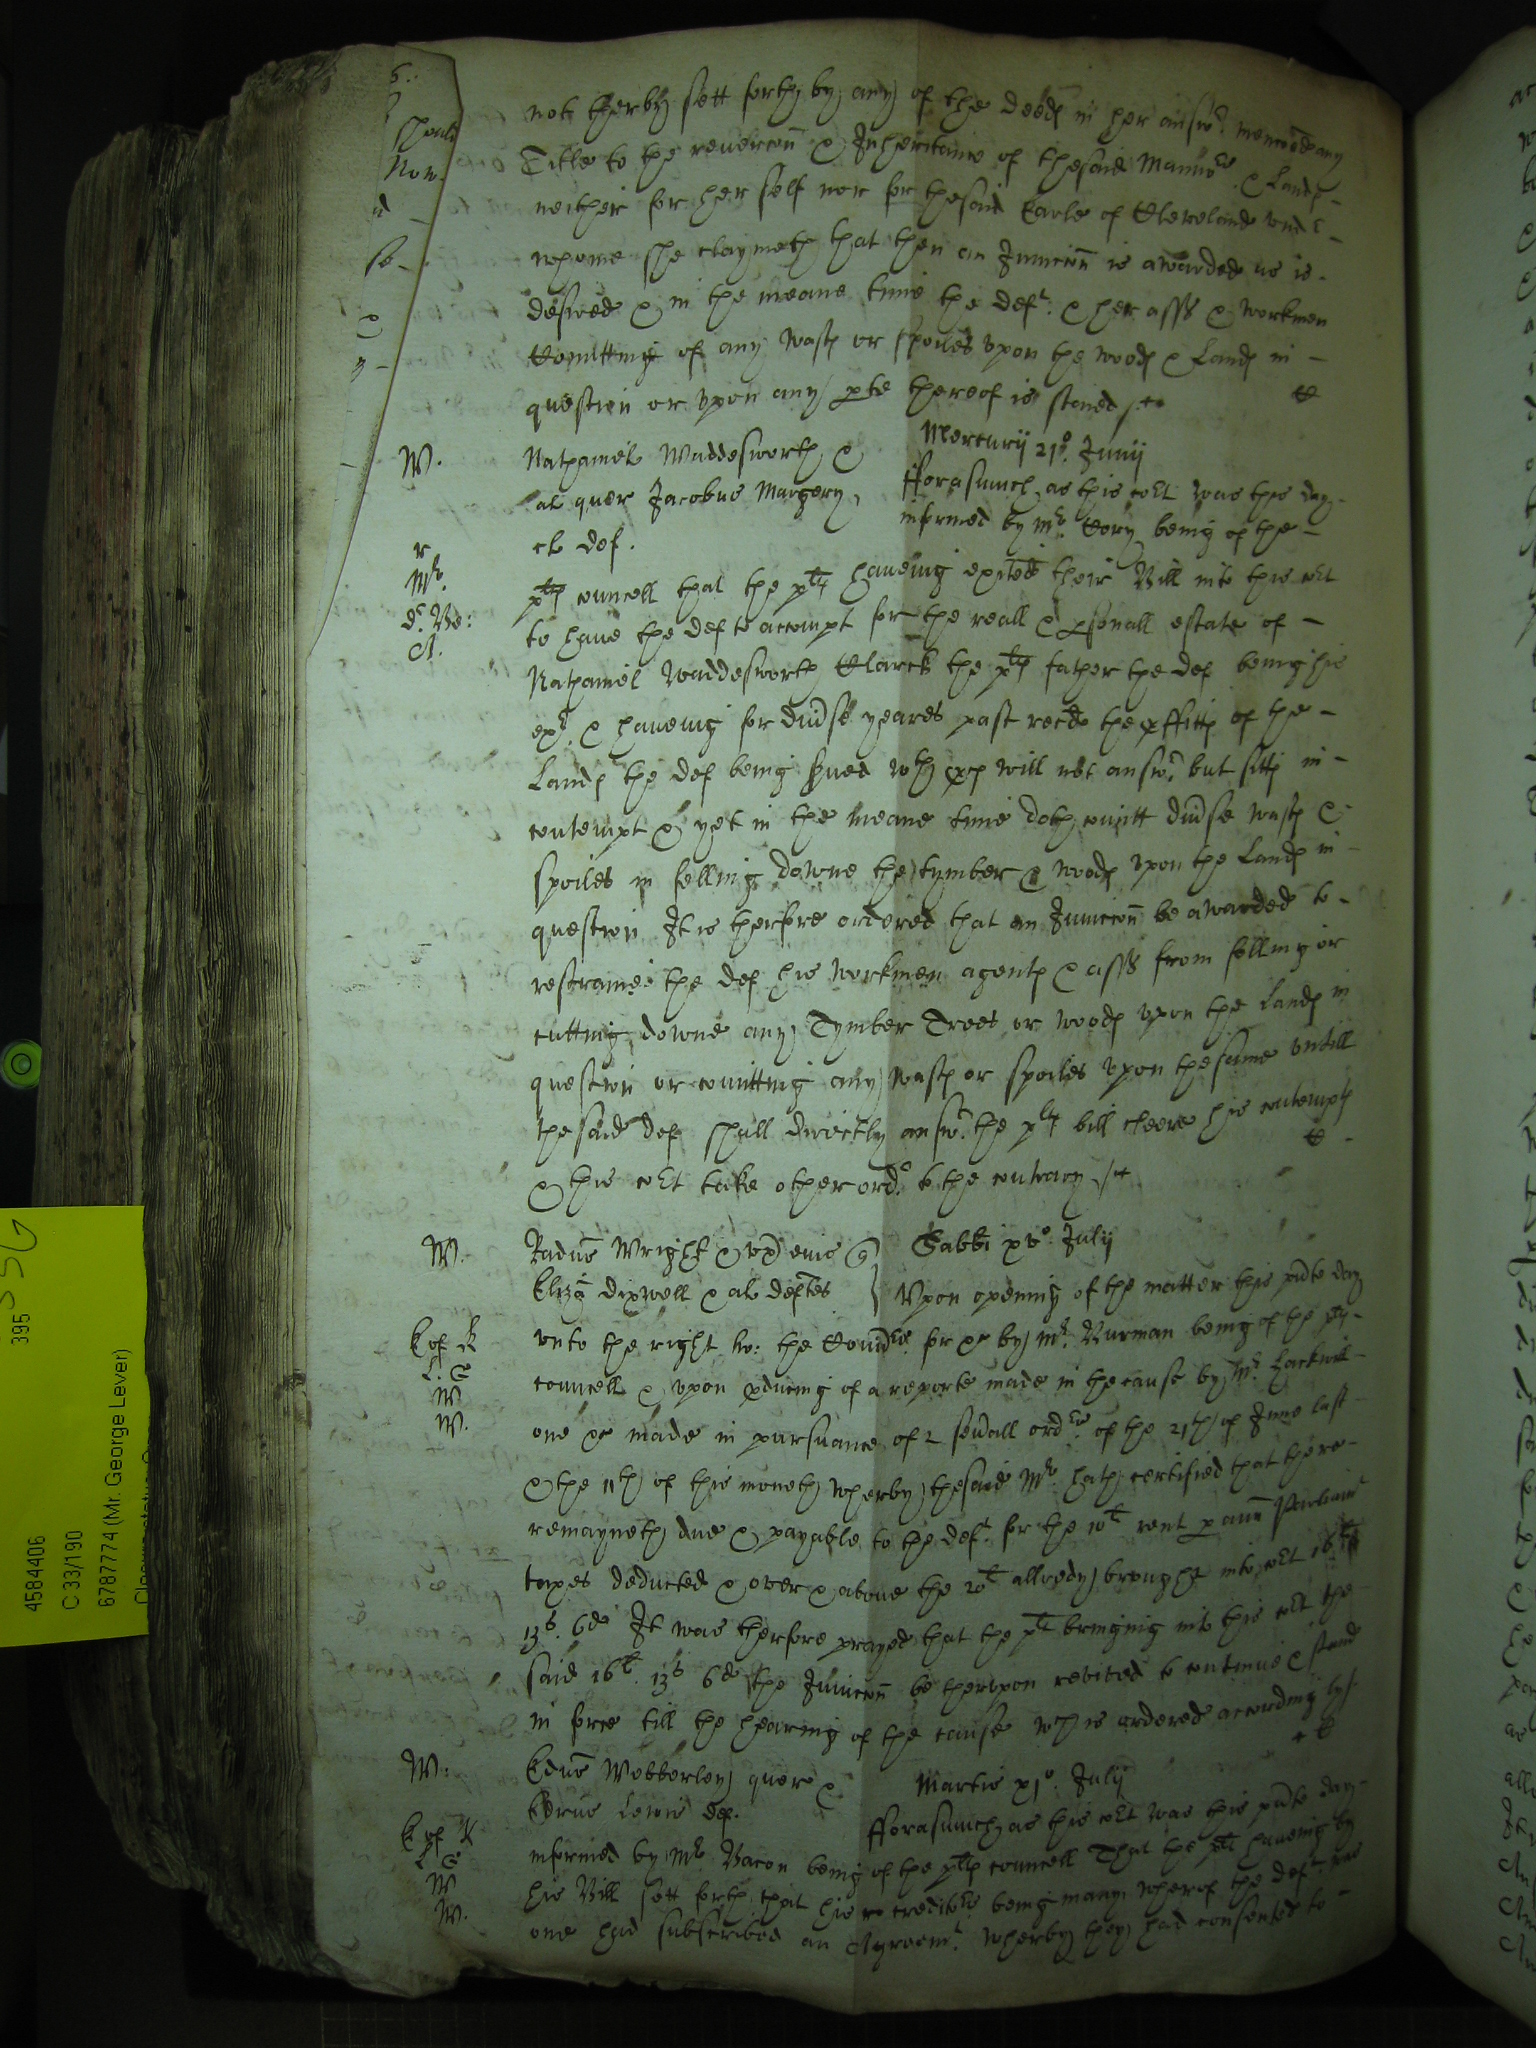 not therby sett forth by any of the deeds in her answ:r mencoēd any
Title to the revercōn & Inheritance of thesaid Mannors & Lands
neither for her self nor for thesaid Earle of Cleveland und:r
whome she claymeth that then an Iniuncōn is awarded as is
desired & in the meane time the def:t & her asss & workmen
Comitting of any wasts or spoiles upon the woods & Lands in
question or upon any pte thereof is staied
W.
Mercurij 21º. Junij
Nathaniel Waddesworth &
al quer Jacobus Margery
al def.
fforasmuch as this co:rt was this day
informed by Mr. Cory being of the
r
Mr.
A.
plts councell that the plts haveing exited their Bill into this co:rt
to have the def to accompt for the reall & psonall estate of
Nathaniel Waddesworth Clarck the plts father the def being his
exr. & haveing for divse yeares past recd the pffitts of the
Lands the def being srved wth pces will not answ:r but sitts in
contempt & yet in the meane time doth comitt divse wasts &
spoiles in felling downe the tymber & woods upon the Lands in
question It is therfore ordered that an Iniuncōn be awarded to
restraine the def his workmen agents & asss from felling or
cutting downe any Tymber Trees or woods upon the Lands in
question or comitting any wasts or spoiles upon thesame untill
thesaid def shall directly answ:r the plts bill cleere his contempts
& this co:rt take other ord:r to the contrary
W.
Sabbi xvº. Julij
Radus Wright & ux eius q
Eliz dixwell & al deftes
Upon opening of the matter this pnte day
K of R
L. G
W
W.
unto the right ho: the Comrs. for &c by Mr. Burman being of the plts
councell & upon pducing of a reporte made in the cause by Mr. Lackwill
one &c made in pursuance of 2 sevall ordrs of the 21th of June last
& the 11th of this moneth wherby thesaid Mr. hath certified that there
remayneth due & payable to the deft. for the 10l rent p ann Parliamt
taxes deducted & over & above the 20l allredy brought into co:rt 16l
13s. 6d It was therfore prayed that the plt bringing into this co:rt the
said 16l. 13s 6d the Iniuncōn be therupon revived to continue & stand
in force till the hearing of the cause wch is ordered accordingly
W:
Martis xjº. Julij
Edus Wobberley quer &
Lewis def.
fforasmuch as this co:rt was this pnte day
K of R
L G
W
W.
informed by Mr. Bacon being of the plts councell That the plt haveing by
his Bill sett forth that his creditors being many wherof the deft. was
one had subscribed an Agreemt. wherby they had consented to
395
4584406
C 33/190
6787774 (Mr. George Lever)